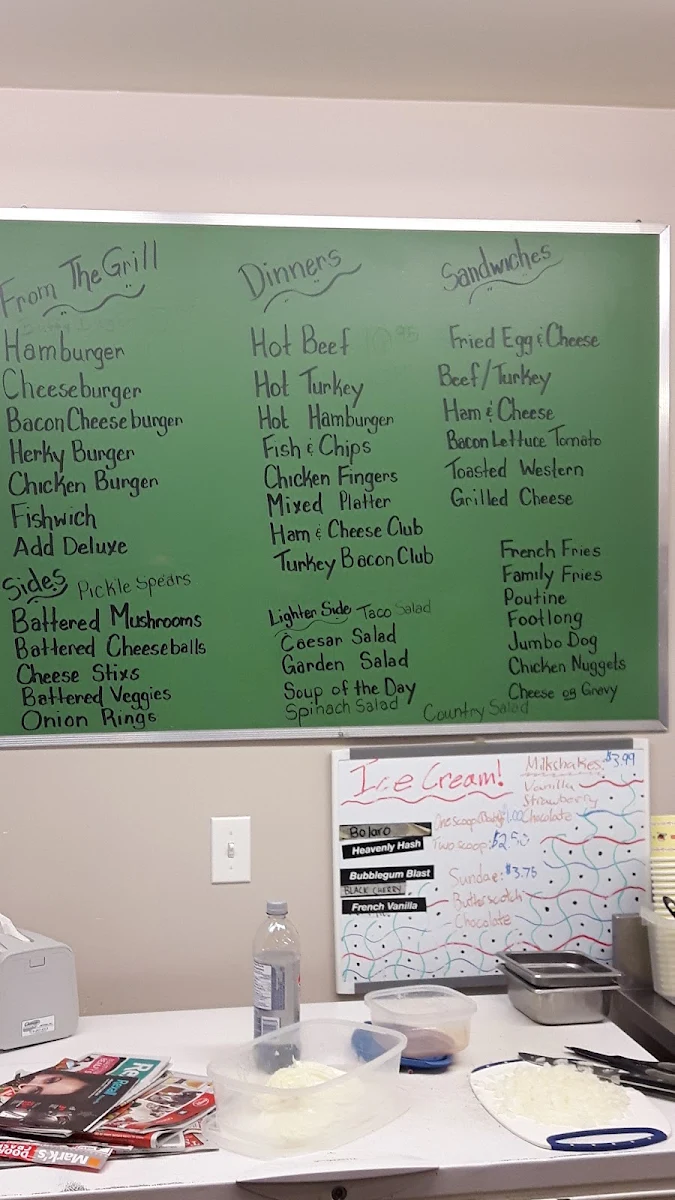 From The Grill
Hamburger
Cheeseburger
Bacon Cheeseburger
Herky Burger
Chicken Burger
Fishwich
Add Deluxe
Sides Pickle Spears
Battered Mushrooms
Battered Cheeseballs
Cheese Stixs
Battered Veggies
Onion Rings
Dinners
Hot Beef
Hot Turkey
Hot Hamburger
Fish & Chips
Chicken Fingers
Mixed Platter
Ham & Cheese Club
Turkey Bacon Club
Lighter Side Taco Salad
Caesar Salad
Garden Salad
Soup of the Day
Spinach Salad
Country Salad
Sandwiches
Fried Egg & Cheese
Beef/Turkey
Ham & Cheese
Bacon Lettuce Tomato
Toasted Western
Grilled Cheese
French Fries
Family Fries
Poutine
Footlong
Jumbo Dog
Chicken Nuggets
Cheese og Gravy
Ice Cream!
Bolaro
Heavenly Hash
Bubblegum Blast
BLACK CHERRY
French Vanilla
One scoop (Baby) $1.00
Two scoop: $2.50
Sundae: $3.75
Butterscotch
Chocolate
Milkshakes: $3.99
Vanilla
Strawberry
Chocolate
Real
Mark's